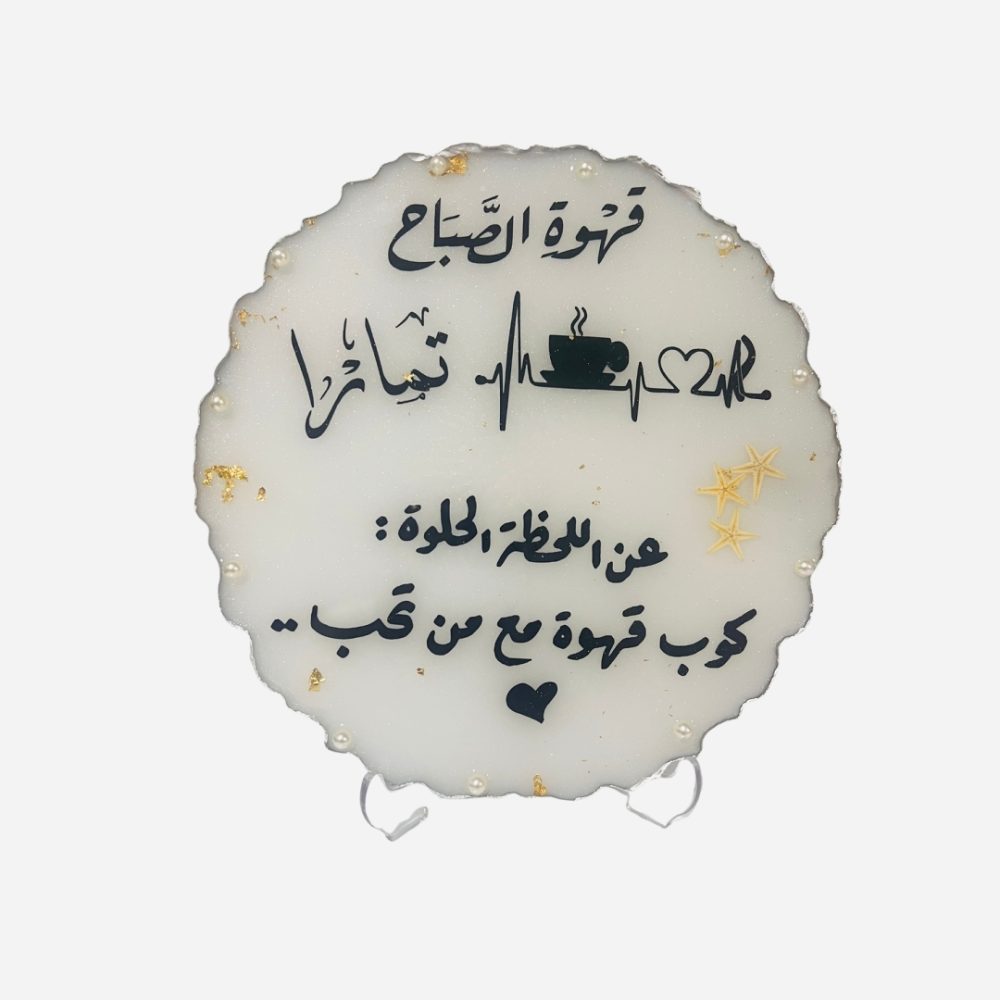 قهْوةِ الصَّبَاح
تمارا
عن اللحظة الحلوة :
كوب قهوة مع من تحب ..